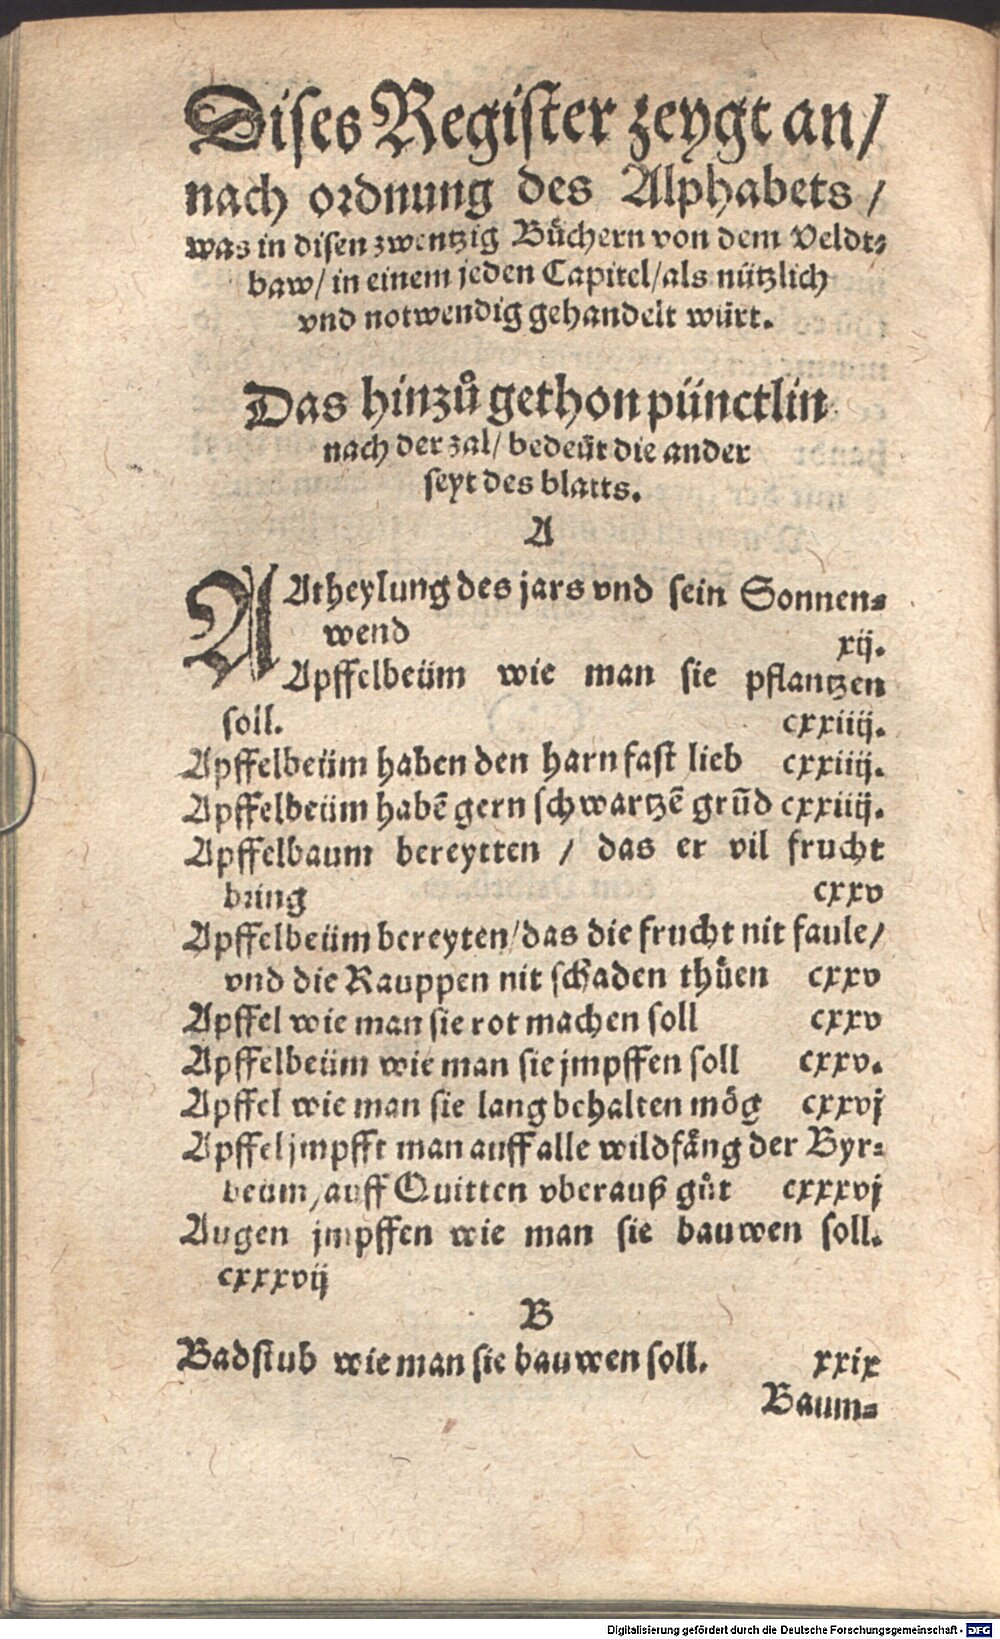 Dises Register zeygt an/
nach ordnung des Alphabets /
was in disen zwentzig Buͤchern von dem Veldt⸗
baw/ in einem jeden Capitel/als nuͤtzlich
vnd notwendig gehandelt wuͤrt.
Das hinzuͦ gethon puͤnctlin
nach der zal/ bedeuͤt die ander
seyt des blatts.
A
AAtheylung des jars vnd sein Sonnen⸗
wend xij.
Apffelbeuͤm wie man sie pflantzen
soll. cxxiiij.
Apffelbeuͤm haben den harn fast lieb cxxiiij.
Apffelbeuͤm habē gern schwartzē grūd cxxiiij.
Apffelbaum bereytten / das er vil frucht
bring cxxv
Apffelbeuͤm bereyten/das die frucht nit faule/
vnd die Rauppen nit schaden thuͤen cxxv
Apffel wie man sie rot machen soll cxxv
Apffelbeuͤm wie man sie jmpffen soll cxxv.
Apffel wie man sie lang behalten moͤg cxxvj
Apffel jmpfft man auff alle wildfaͤng der Byr⸗
beuͤm/auff Quitten vberauß guͦt cxxxvj
Augen jmpffen wie man sie bauwen soll.
cxxxvij
B
Badstub wie man sie bauwen soll. xxix
Baum⸗
Digitalisierung gefördert durch die Deutsche Forschungsgemeinschaft - DFG